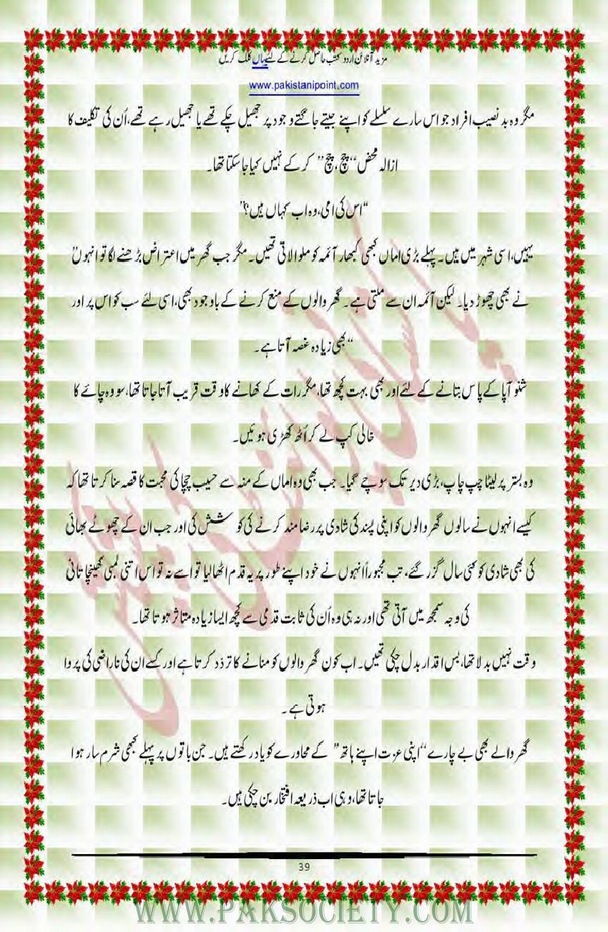 مزید آنلائن اردو کتب حاصل کرنے کے لئے یہاں کلک کریں
www.pakistanipoint.com
مگر وہ بد نصیب افراد جو اس سارے سلسلے کو اپنے جیتے جاگتے وجود پر جھیل چکے تھے یا جھیل رہے تھے، اُن کی تکلیف کا
ازالہ محض “چچ، چچ” کر کے نہیں کیا جا سکتا تھا۔
“اس کی امی، وہ اب کہاں ہیں؟”
یہیں، اسی شہر میں ہیں۔ پہلے بڑی اماں کبھی کبھار آئمہ کو ملوا لاتی تھیں۔ مگر جب گھر میں اعتراض بڑھنے لگا تو انہوں”
نے بھی چھوڑ دیا۔ لیکن آئمہ ان سے ملتی ہے۔ گھر والوں کے منع کرنے کے باوجود بھی، اسی لئے سب کو اس پر اور
“بھی زیادہ غصہ آتا ہے۔
شنو آپا کے پاس بتانے کے لئے اور بھی بہت کچھ تھا، مگر رات کے کھانے کا وقت قریب آتا جاتا تھا، سو وہ چائے کا
خالی کپ لے کر اُٹھ کھڑی ہوئیں۔
وہ بستر پر لیٹا چپ چاپ، بڑی دیر تک سوچے گیا۔ جب بھی وہ اماں کے منہ سے حسیب چچا کی محبت کا قصہ سنا کرتا تھا کہ
کیسے انہوں نے سالوں گھر والوں کو اپنی پسند کی شادی پر رضامند کرنے کی کوشش کی اور جب ان کے چھوٹے بھائی
کی بھی شادی کو کئی سال گزر گئے، تب مجبوراً انہوں نے خود اپنے طور پر یہ قدم اٹھا لیا تو اسے نہ تو اس اتنی لمبی کھینچا تانی
کی وجہ سمجھ میں آتی تھی اور نہ ہی وہ اُن کی ثابت قدمی سے کچھ ایسا زیادہ متاثر ہوتا تھا۔
وقت نہیں بدلا تھا، بس اقدار بدل چکی تھیں۔ اب کون گھر والوں کو منانے کا تردّد کرتا ہے اور کسے ان کی ناراضی کی پروا
ہوتی ہے۔
گھر والے بھی بے چارے “اپنی عزت اپنے ہاتھ” کے محاورے کو یاد رکھتے ہیں۔ جن باتوں پر پہلے کبھی شرم سار ہوا
جاتا تھا، وہی اب ذریعہ افتخار بن چکی ہیں۔
39
WWW.PAKSOCIETY.COM